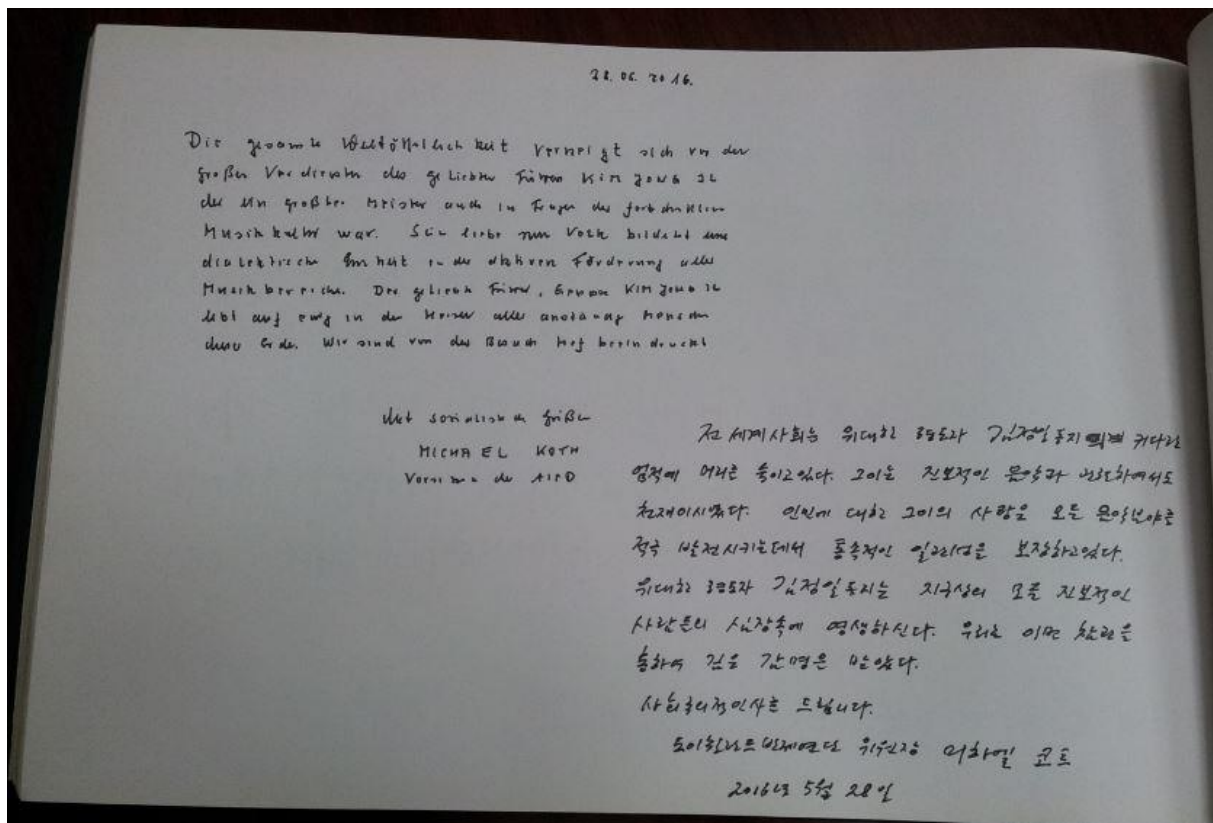 28.05.2016.
Die gesamte Weltöffentlichkeit verneigt sich vor den
großen Verdiensten des geliebten Führers KIM JONG IL
der ein großer Meister auch in Fragen der fortschrittlichen
Musikkultur war. Seine Liebe zum Volk bildet eine
dialektische Einheit in der aktiven Förderung aller
Musikbereiche. Der geliebte Führer, Genosse KIM JONG IL
lebt auf ewig in den Herzen aller anständigen Menschen
dieser Erde. Wir sind von dem Besuch tief beeindruckt
Mit sozialistischen Grüßen
MICHAEL KOTH
Vorsitzender der AIPD
전 세계사회는 위대한 령도자 김정일동지의 커다란
업적에 머리를 숙이고있다. 그이는 진보적인 음악과 관련하여서도
천재이시였다. 인민에 대한 그이의 사랑은 모든 음악분야를
적극 발전시키는데서 통속적인 일관성을 보장하고있다.
위대한 령도자 김정일동지는 지구상의 모든 진보적인
사람들의 심장속에 영생하신다. 우리는 이번 참관을
통하여 깊은 감명을 받았다.
사회주의적인사를 드립니다.
도이췰란드반제연단 위원장 미하엘 코트
2016년 5월 28일